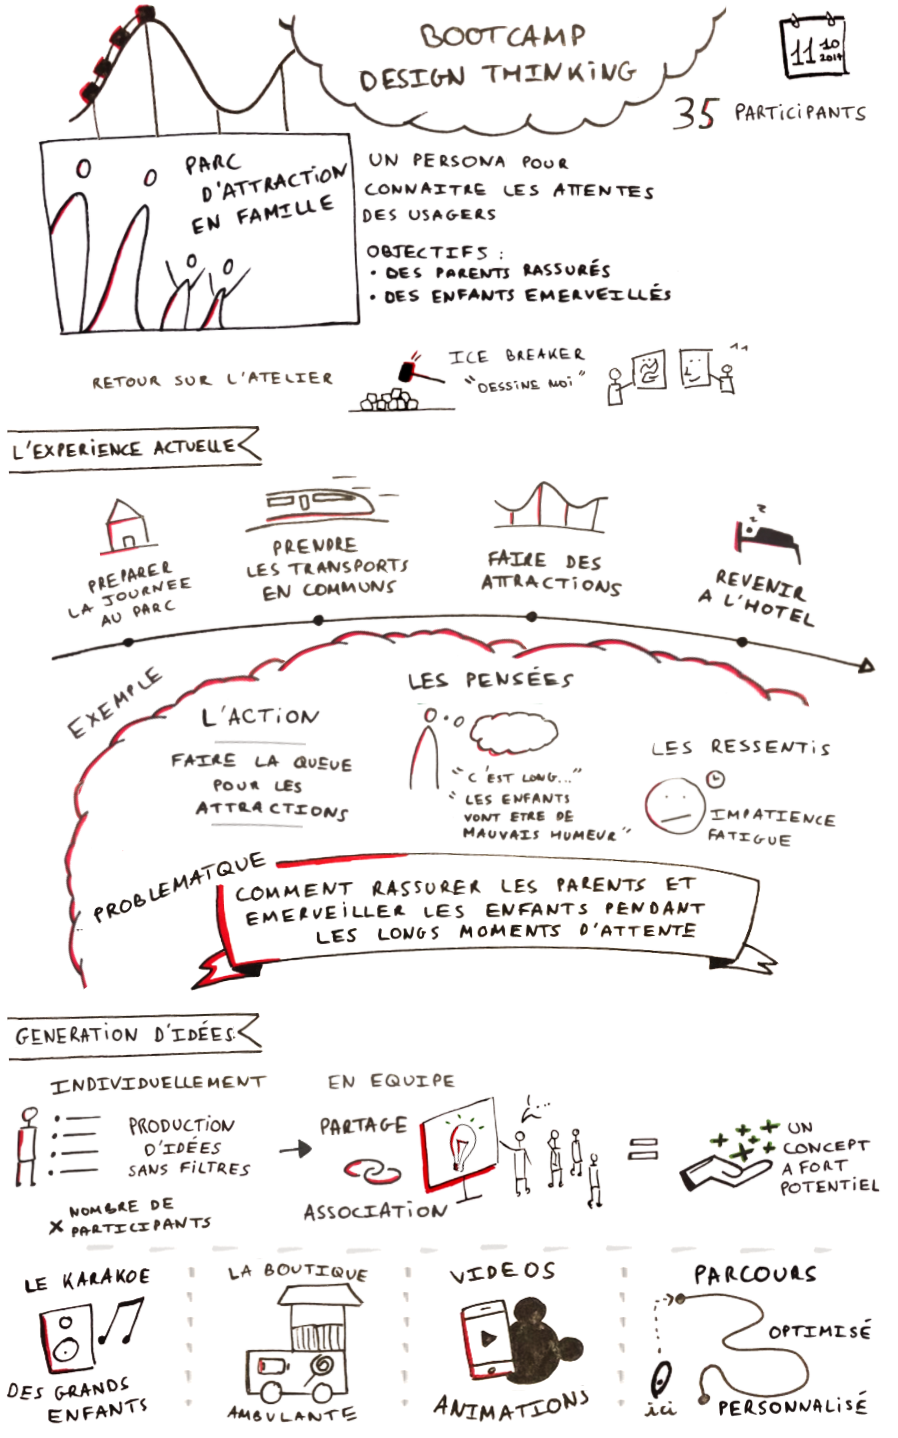 BOOTCAMP
DESIGN THINKING
11 10
2017
35 PARTICIPANTS
PARC
D'ATTRACTION
EN FAMILLE
UN PERSONA POUR
CONNAITRE LES ATTENTES
DES USAGERS
OBJECTIFS :
• DES PARENTS RASSURÉS
• DES ENFANTS EMERVEILLÉS
RETOUR SUR L'ATELIER
ICE BREAKER
"DESSINE MOI"
L'EXPERIENCE ACTUELLE
PREPARER
LA JOURNEE
AU PARC
PRENDRE
LES TRANSPORTS
EN COMMUNS
FAIRE DES
ATTRACTIONS
z z
REVENIR
A L'HOTEL
EXEMPLE
L'ACTION
FAIRE LA QUEUE
POUR LES
ATTRACTIONS
LES PENSÉES
"C'EST LONG..."
"LES ENFANTS
VONT ETRE DE
MAUVAIS HUMEUR"
LES RESSENTIS
IMPATIENCE
FATIGUE
PROBLEMATQUE
COMMENT RASSURER LES PARENTS ET
EMERVEILLER LES ENFANTS PENDANT
LES LONGS MOMENTS D'ATTENTE
GENERATION D'IDÉES:
INDIVIDUELLEMENT
PRODUCTION
D'IDÉES
SANS FILTRES
X NOMBRE DE
PARTICIPANTS
EN EQUIPE
PARTAGE
ASSOCIATION
=
UN
CONCEPT
A FORT
POTENTIEL
LE KARAKOE
DES GRANDS
ENFANTS
LA BOUTIQUE
AMBULANTE
VIDEOS
ANIMATIONS
PARCOURS
OPTIMISÉ
ici
PERSONNALISÉ